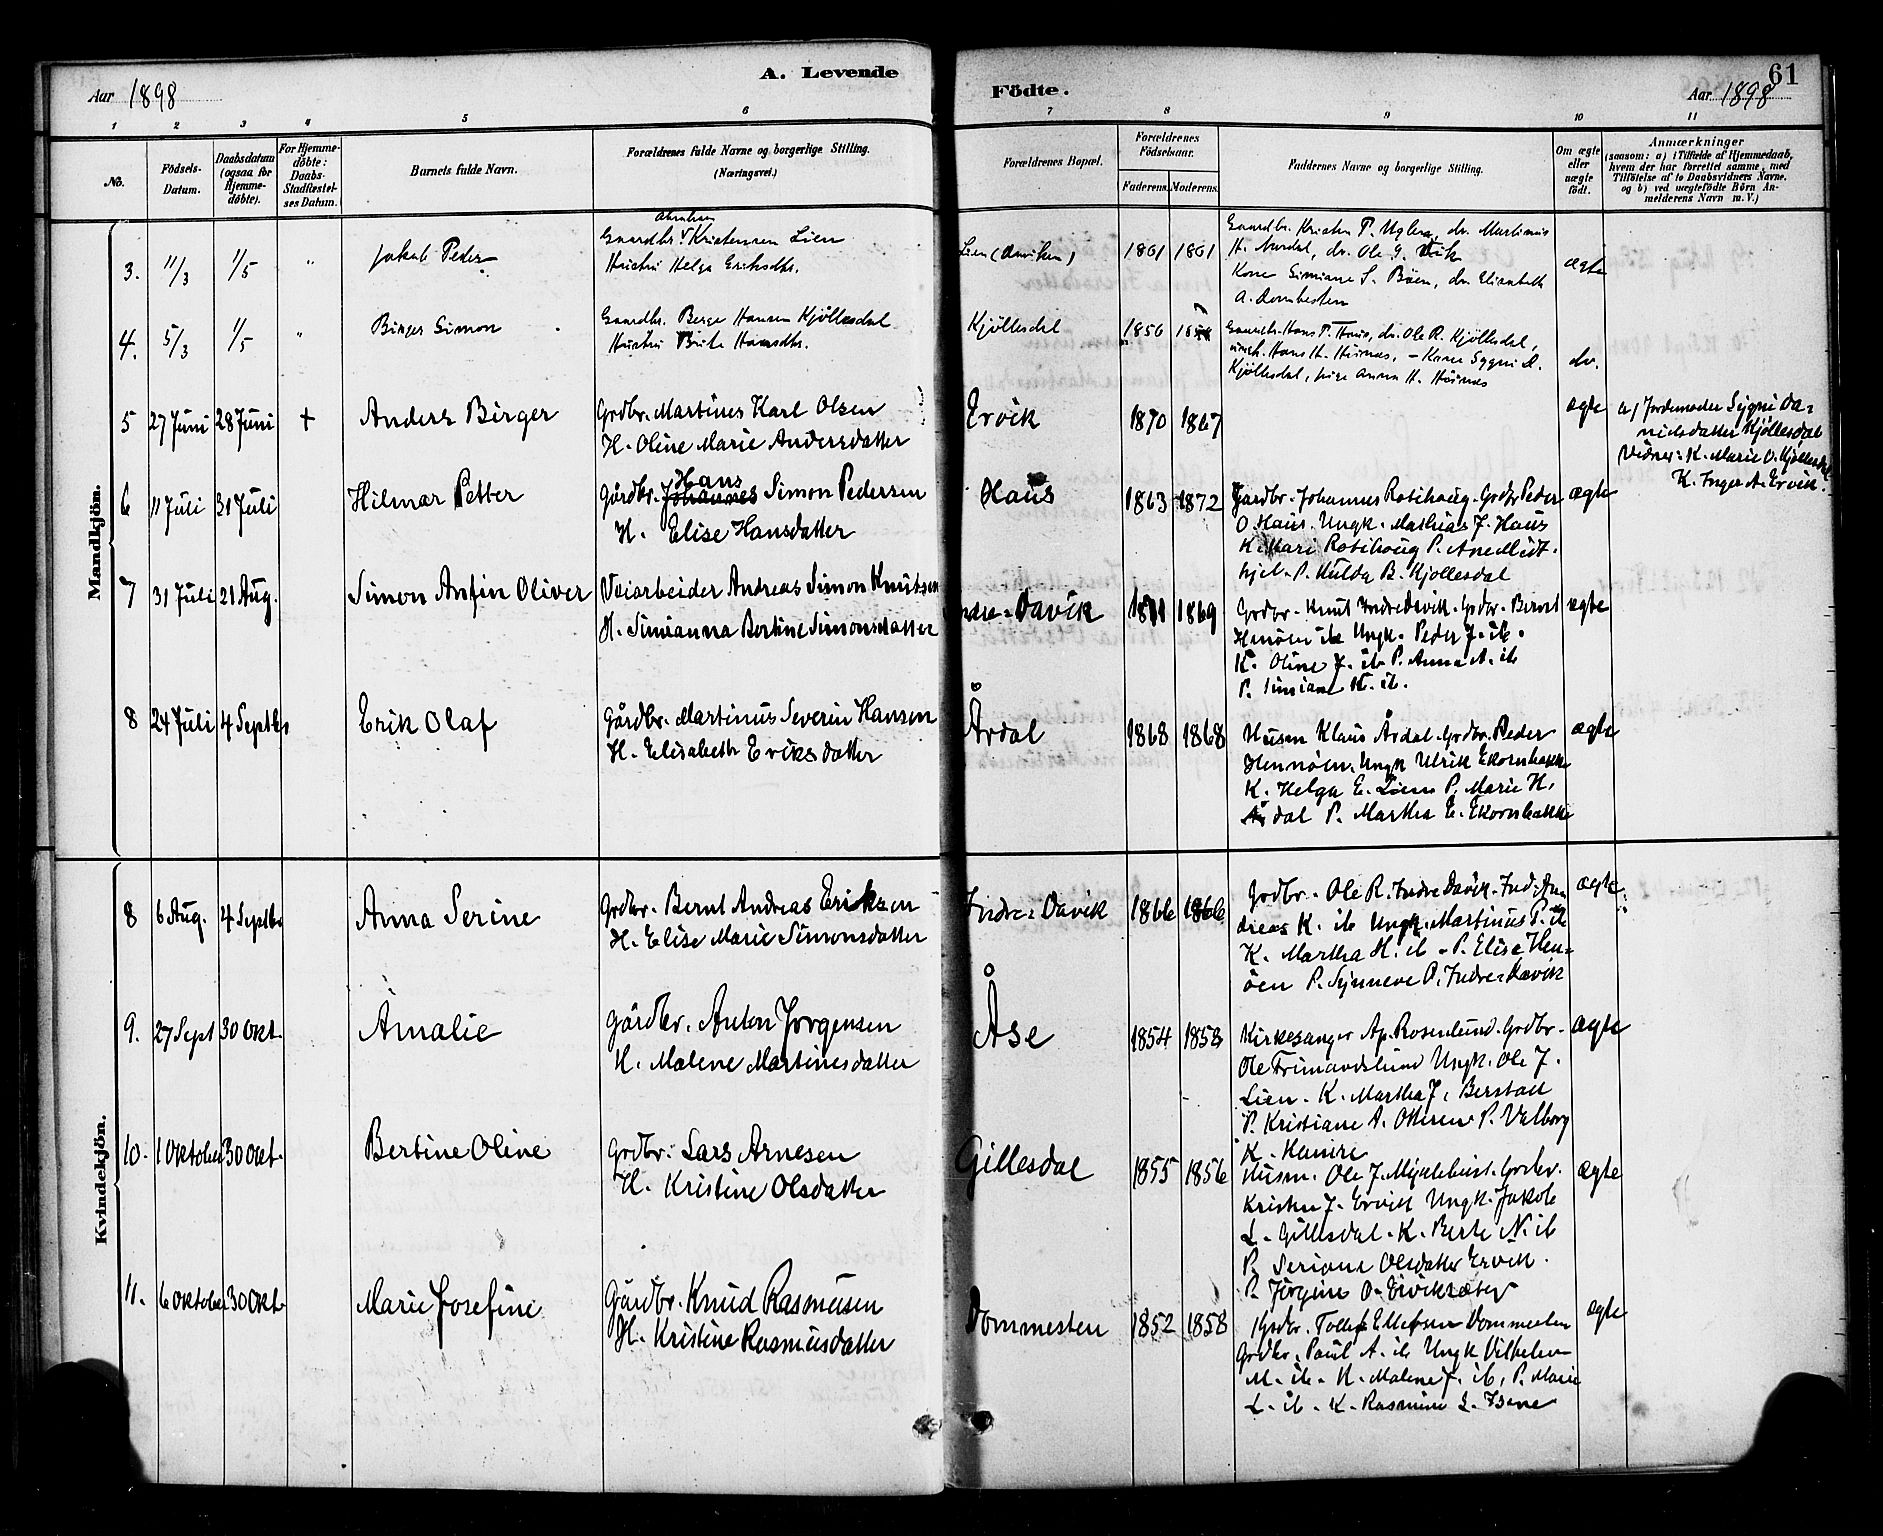 A. Levende
Aar 1898
1 2 3 4 5 6
No.
Födsels-
Datum.
Daabsdatum
(ogsaa for
Hjemme-
döbte).
For Hjemme-
döbte:
Daabs-
Stadfæstel-
ses Datum.
Barnets fulde Navn.
Forældrenes fulde Navne og borgerlige Stilling.
(Næringsvei.)
Födte.
61
Aar 1898
7 8 9 10 11
Forældrenes Bopæl.
Forældrenes
Födselsaar.
Faderens. Moderens.
Faddernes Navne og borgerlige Stilling.
Om ægte
eller
uægte
födt.
Anmærkninger
(saasom: a) i Tilfælde af Hjemmedaab,
hvem der har forrettet samme, med
Tilföielse af to Daabsvidners Navne.
og b) ved uægtefödte Börn An-
melderens Navn m. V.)
Mandkjön.
3. 11/3 1/5 " Jakob Peder
Abraham
Gaardbr. Kristensen Lien
Hustru Helga Eriksdtr.
Lien (Daviken) 1861 1861
Gaardbr. Kristen P. Uglen, do. Martinus
H. Aardal, do. Ole G. Vik
Kone Simiane S. Böen, do. Elisabeth
A. Dombesten
ægte
4. 5/3 1/5 " Birger Simon
Gaardbr. Berge Hansen Kjöllesdal
Hustru Brite Hansdtr.
Kjöllesdal 1856
Gaardbr. Hans P. Haus, do. Ole R. Kjöllesdal,
ungk. Hans H. Hüsnæs, - Kone Sygni D.
Kjöllesdal, pige Anna H. Hüsnæs
do.
5 27 Juni 28 Juni + Anders Birger
Grdbr. Martines Karl Olsen
H. Oline Marie Andersdatter
Ervik 1870 1867 ægte
a) Jordemoder Sygni Da-
nielsdatter Kjöllesdal
Vidner: K. Marie O. Kjöllesdal
K. Inger A. Ervik.
6 11 Juli 31 Juli Hilmar Petter
Hans
Gårdbr. Johannes Simon Pedersen
H. Elise Hansdatter
Haus 1863 1872
Gardbr. Johannes Rotihaug. Grdbr Peder
O. Haus. Ungk. Mathias J. Haus
K. Mari Rotihoug P. Ane Midt-
hjel - P. Hulda B. Kjøllesdal
ægte
7 31 Juli 21 Aug. Simon Anfin Oliver
Veiarbeider Andreas Simon Knutsen
H. Simianna Bertine Simonsdatter
Indre-Davik 1871 1869
Grdbr - Knut Indre Davik. Grdbr. Bernt
Henöen ib Ungk. Peder J. ib.
K. Oline J. ib P. Anna A. ib
P. Simiane K. ib.
ægte
8 24 Juli 4 Septbr Erik Olaf
Gårdbr. Martinus Severin Hansen
H. Elisabeth Eriksdatter
Årdal 1868 1868
Husm Klaus Årdal. Grdbr. Peder
Hennöen. Ungk Ulrik Ekornbakke
K. Helga E. Lien P. Marie H.
Årdal P. Martha E. Ekornbakke
ægte
Kvindekjön.
8 6 Aug. 4 Septbr Anna Serine
Grdbr. Bernt Andreas Eriksen
H. Elise Marie Simonsdatter
Indre-Davik 1866 1866
Grdbr. Ole R. Indre Davik. Ind. An
dreas K. ib Ungk. Martinus P. ib
K. Martha H. ib - P. Elise Hen-
öen P. Synneve P. Indre-Davik
ægte
9. 27 Sept 30 Okt. Amalie
Gårdbr. Anton Jørgensen
H. Malene Martinesdatter
Åse 1854 1858
Kirkesanger Ap. Rosenlund. Grdbr.
Ole Frimandslund Ungk. Ole J.
Lien. K. Martha J. Berstad
P. Kristiane A. Otteren P. Valborg
K. Hamre
ægte
10. 1 Oktober 30 Okt. Bertine Oline
Grdbr. Lars Arnesen
H. Kristine Olsdatter
Gillesdal 1855 1856
Husm. Ole J. Myklebust. Grdbr.
Kristen J. Ervik Ungk. Jakob
L. Gillesdal. K. Berte N. ib
P. Seriane Olsdatter Ervik.
P. Jörgine O. Erviksæter
ægte
11. 6 Oktober 30 Okt. Marie Josefine
Gårdbr. Knud Rasmusen
H. Kristine Rasmusdatter
Dommesten 1852 1858
Grdbr. Tollef Ellefsen Dommesten
Grdbr. Paul A. ib Ungk Vilhelm
M. ib. K. Malene J. ib, P. Marie
L. ib. K. Rasmine L. Isene
ægte